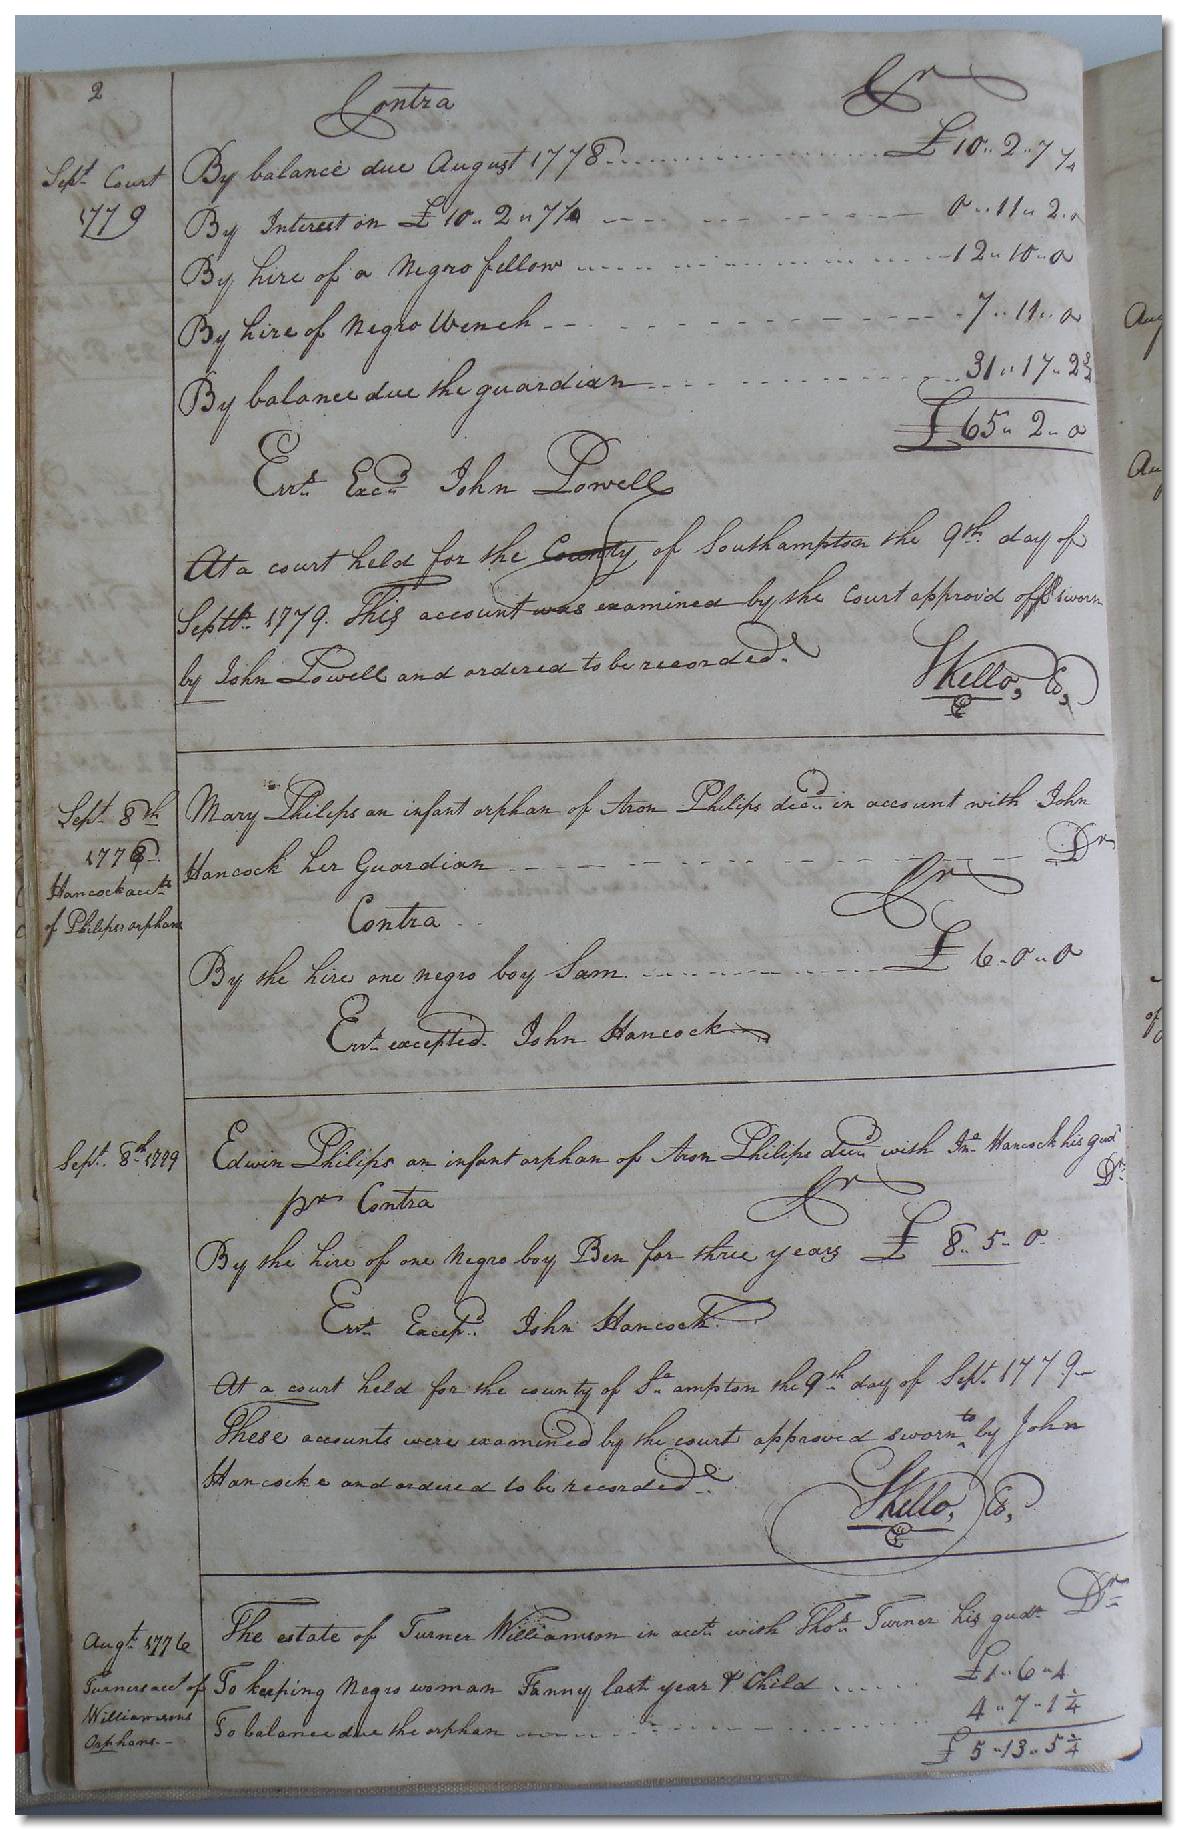 2
Contra Cr
Sept. Court
1779
By balance due August 1778 £10..2..7 ¼
By Interest on £10..2..7¼ 0..11..2..0
By hire of a Negro fellow 12..10..0
By hire of Negro Wench 7..11..0
By balance due the guardian 31..17..2 ¾
£65..2..0
Errs. Excd. John Powell
At a court held for the County of Southampton the 9th day of
Septr. 1779. This account was examined by the Court approvd off & sworn
by John Powell and ordered to be recorded.
Skello, Co,
Sept. 8th
1779
Hancock accts
of Philips orphans
Mary Philips an infant orphan of Aron Philips decd. in account with John
Hancock her Guardian Dr
Contra Cr
By the hire one negro boy Sam £6..0..0
Errs. excepted. John Hancock
Sept. 8th 1779
Edwin Philips an infant orphan of Aron Philips decd. with Jno. Hancock his gudn.
Dr
pr Contra Cr
By the hire of one Negro boy Ben for three years £ 8..5..0
Errs. Excepd. John Hancock
At a court held for the county of So. ampton the 9th day of Sept. 1779
These accounts were examined by the court approved sworn to by John
Hancocke and ordered to be recorded.
Skello, Co,
Augt. 1776
Turners acct. of
Williamsons
Orphans
The estate of Turner Williamson in acct. with Thos. Turner his gudn. Dr
To keeping Negro woman Fanny last year & Child £1..6..4
To balance due the orphan 4..7..1 ¼
£5..13..5 ¼
Aug
Aug
of